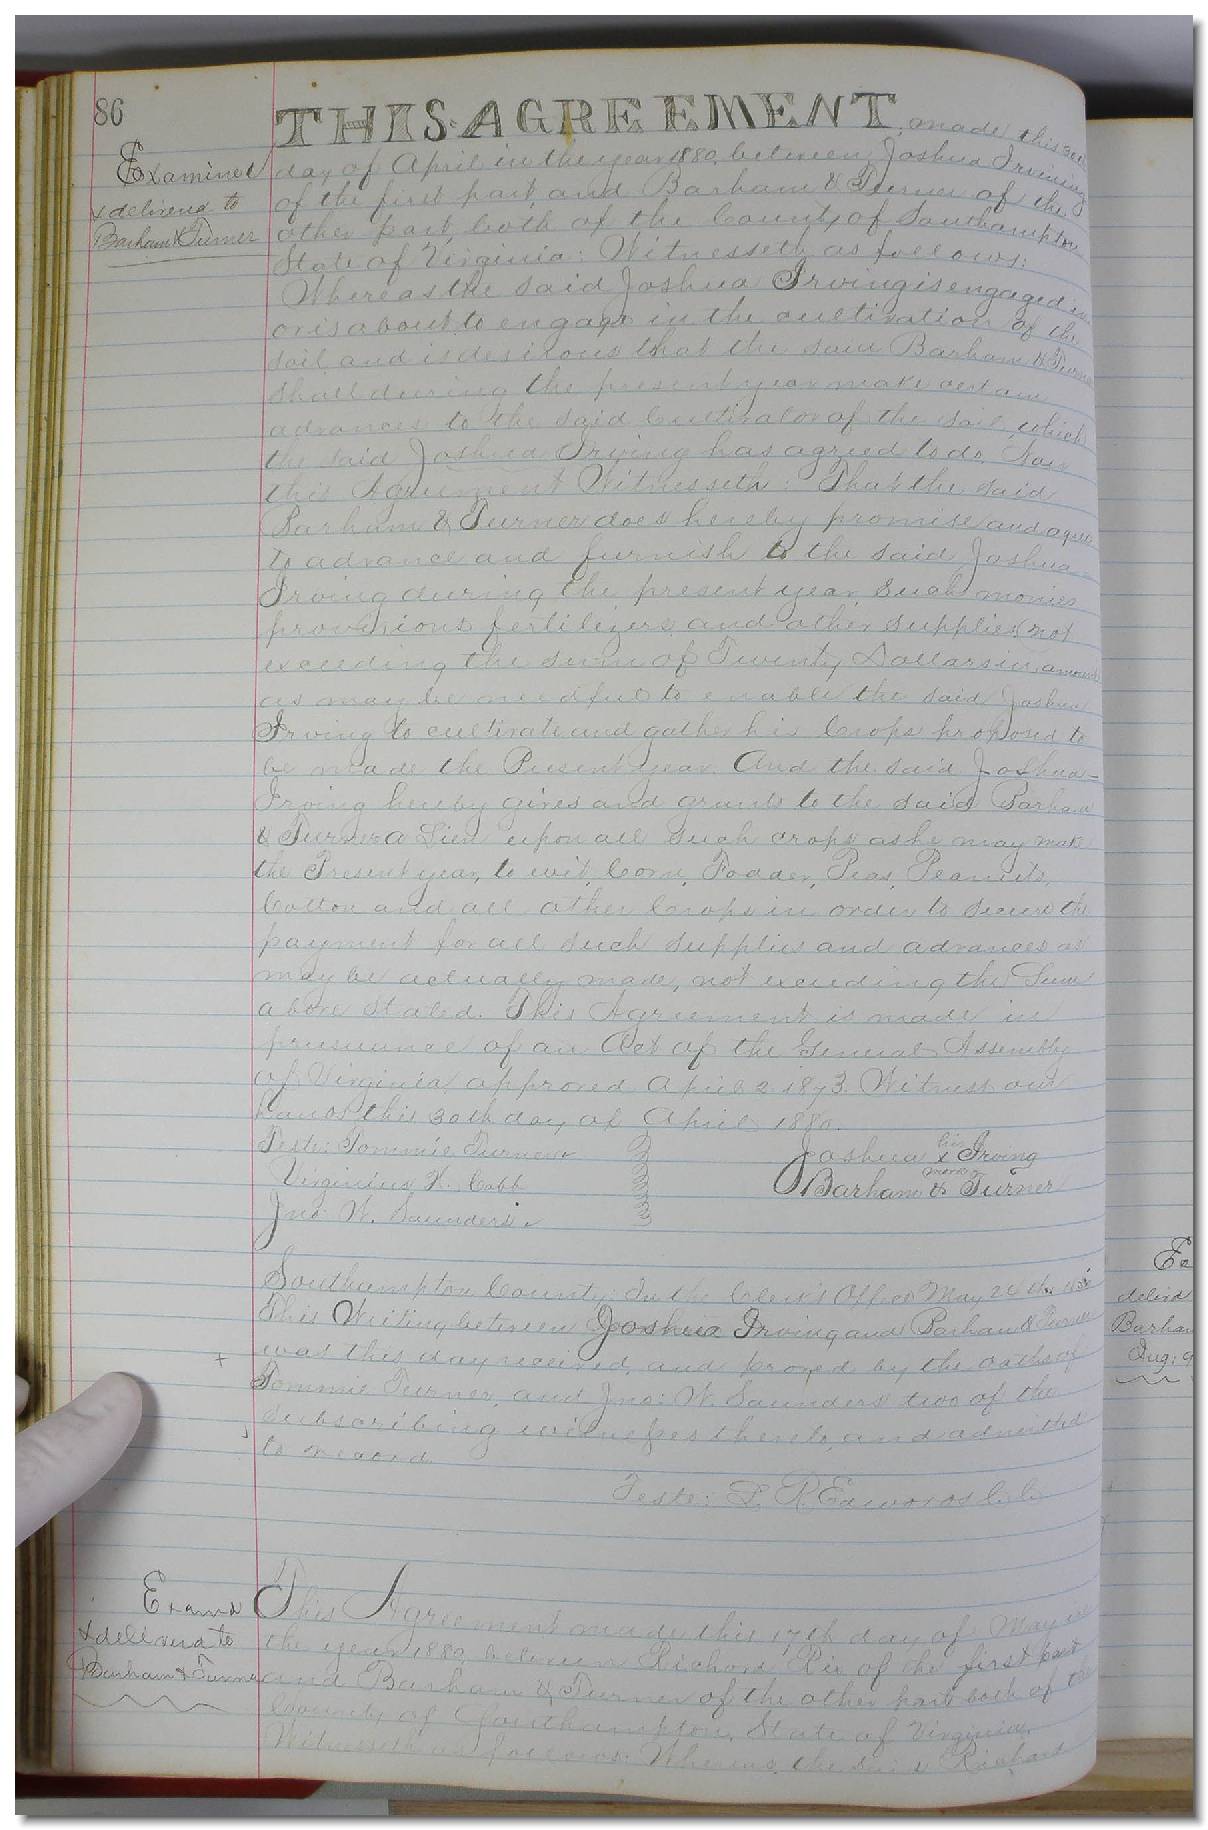 86
THIS AGREEMENT, made this
Examined
& delivered to
Barham & Turner
day of April in the year 1880, between Joshua Irving
of the first part, and Barham & Turner of the
other part, both of the County of Southampton
State of Virginia: Witnesseth as follows:
Whereas the said Joshua Irving is engaged in
or is about to engage in the cultivation of the
soil, and is desirous that the said Barham & Turner
shall during the present year make certain
advances to the said Cultivator of the soil, which
the said Joshua Irving has agreed to do. Now
this Agreement Witnesseth: That the said
Barham & Turner does hereby promise and agree
to advance and furnish to the said Joshua
Irving during the present year, such monies
provisions fertilizers and other supplies, not
exceeding the sum of Twenty Dollars in amount
as may be needful to enable the said Joshua
Irving to cultivate and gather his Crops proposed to
be made the Present year. And the said Joshua
Irving hereby gives and grants to the said Barham
& Turner a Lien upon all such crops as he may make
the Present year, to wit, Corn, Fodder, Peas, Peanuts,
Cotton and all other Crops in order to secure the
payment for all such supplies and advances as
may be actually made, not exceeding the Sum
above stated. This Agreement is made in
pursuance of an Act of the General Assembly
of Virginia approved April 2 1873. Witness our
hands this 30th day of April 1880.
Teste: Tommie Turner
Virginius W. Cobb
Jno: W. Saunders
Joshua his x mark Irving
Barham & Turner
Southampton County: In the Clerk's Office May 24th
This Writing between Joshua Irving and Barham & Turner
was this day received, and proved by the oaths of
Tommie Turner, and Jno: W. Saunders two of the
subscribing witnesses thereto, and admitted
to record.
Teste: L. R. Edwards C. C.
Examd
& delivered to
Barham & Turner
This Agreement made this 17th day of May in
the year 1880, between Richard Rix of the first part
and Barham & Turner of the other part both of the
County of Southampton, State of Virginia,
Witnesseth as follows: Whereas, the said Richard
Ex
delivd
Barham
Aug: 9